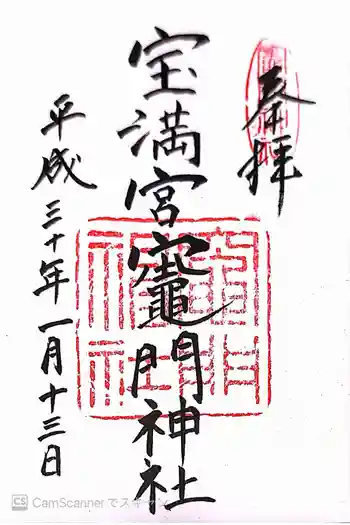 奉拝
宝満宮竈門神社
平成三十年一月十三日
CamScannerでスキャン